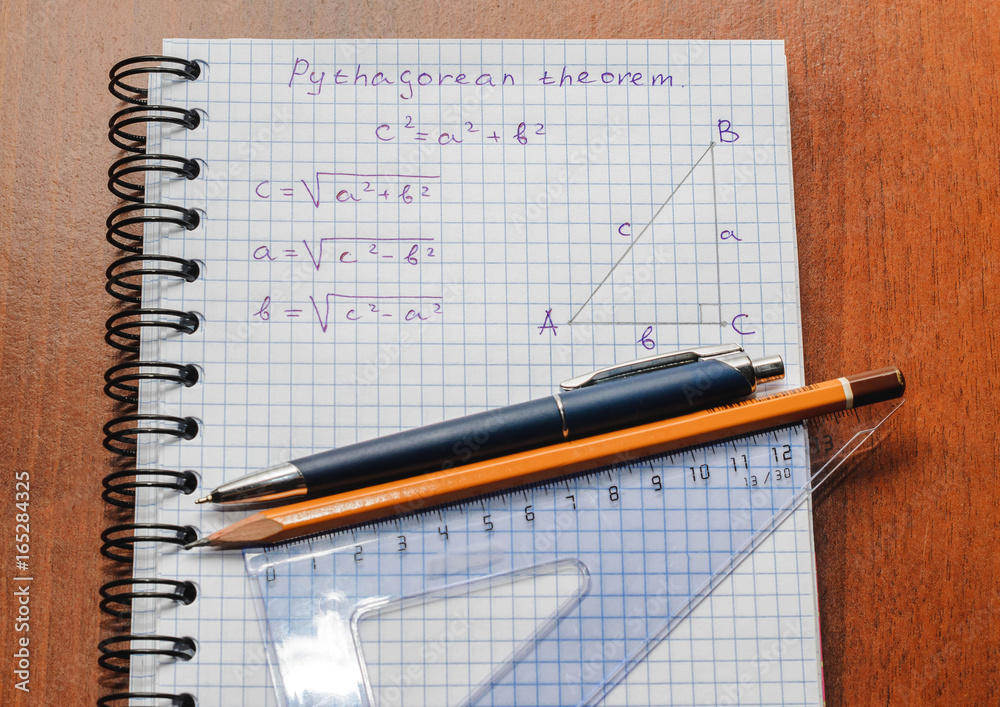 Pythagorean theorem.
c² = a² + b²
c = √a² + b²
a = √c² - b²
b = √c² - a²
B
c
a
A
C
b
0 1 2 3 4 5 6 7 8 9 10 11 12 13
13/30
Adobe Stock | #165284325